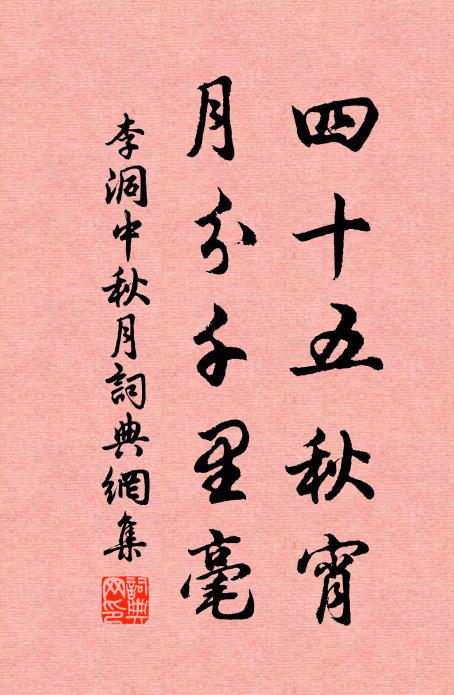 四十五秋宵
月分千里毫
李洞中秋月詞典網集
詞典网印